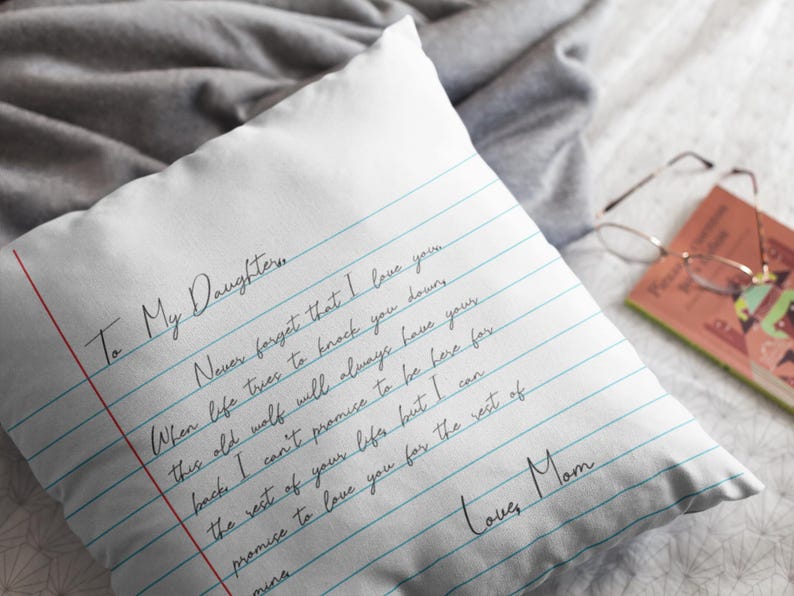 To My Daughter,
Never forget that I love you.
When life tries to knock you down,
this old wolf will always have your
back. I can't promise to be here for
the rest of your life, but I can
promise to love you for the rest of
mine.
Love, Mom